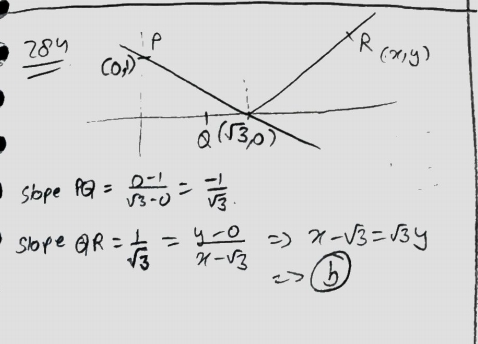 284
P
(0,1)
R (x,y)
Q (√3,0)
slope PQ = 0-1/√3-0 = -1/√3.
slope QR = 1/√3 = y-0/x-√3 => x-√3 = √3y
=> (b)